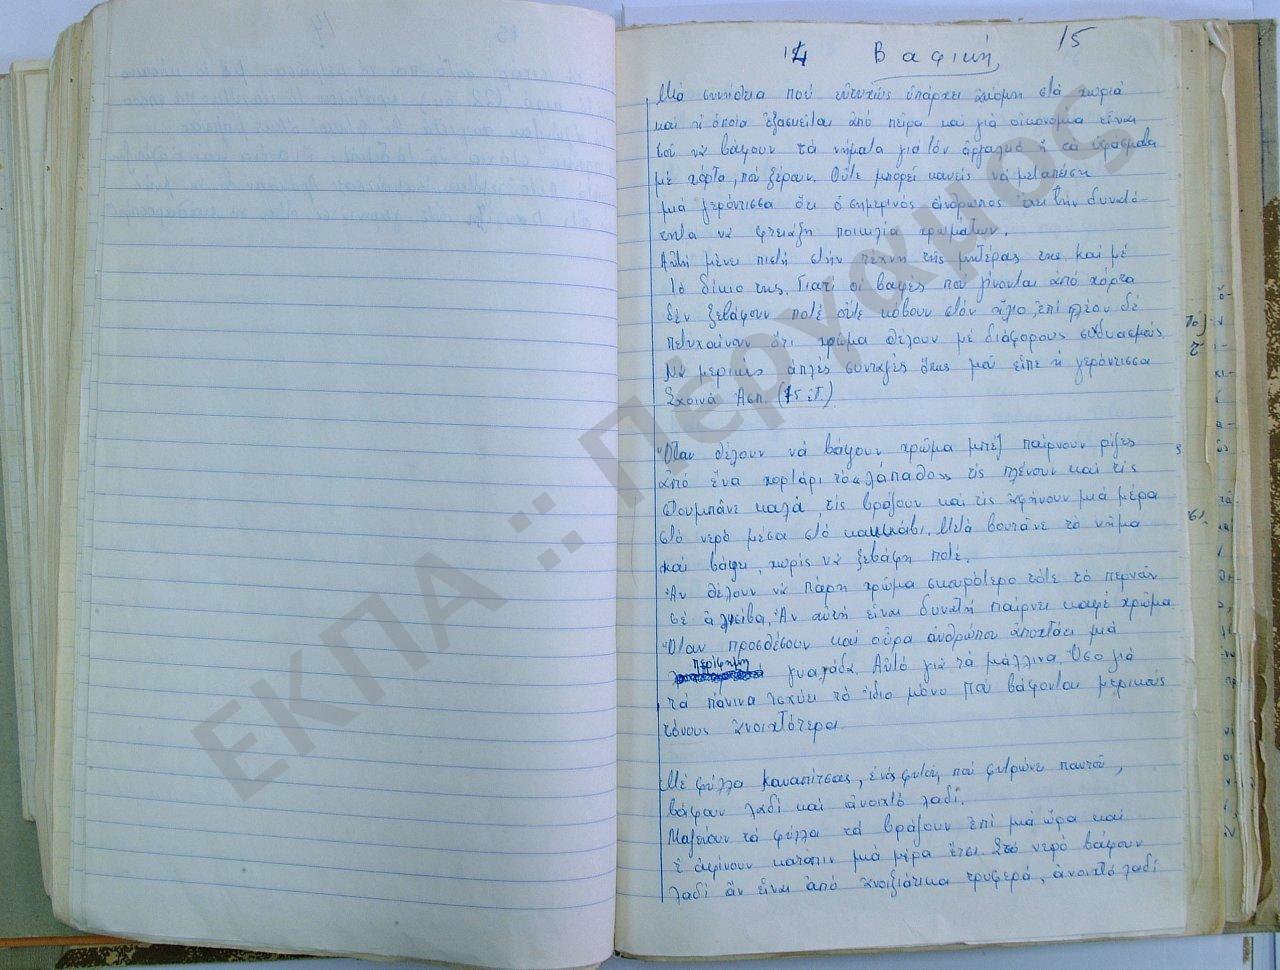 14 Βαφική 15
Μιά συνήθεια πού εὐτυχῶς ὑπάρχει ἀκόμη στά χωριά
καί ἡ ὁποία ἐξασκεῖται ἀπό πεῖρα καί γιά οἰκονομία εἶναι
τοῦ νά βάφουν τά νήματα γιά τόν ἀργαλειό ἤ τά ὑφάσματα
μέ χόρτα, πού ξέρουν. Οὔτε μπορεῖ κανείς νά μεταπείση
μιά γερόντισσα ὅτι ὁ σημερινός ἄνθρωπος ἔχει τήν δυνατό-
τητα νά φτειάξη ποικιλία χρωμάτων.
Αὐτή μένει πιστή στήν τέχνη τῆς μητέρας της καί μέ
τό δίκιο της. Γιατί οἱ βαφές πού γίνονται ἀπό χόρτα
δέν ξεβάφουν ποτέ οὔτε κόβουν στόν ἥλιο, ἐπί πλέον δέ
πετυχαίνουν ὅτι χρῶμα θέλουν μέ διάφορους συνδυασμούς.
Νά μερικές ἁπλές συνταγές ὅπως μοῦ εἶπε ἡ γερόντισσα
Σχοινά Ἀσπ. (75 ἐτ.)
Ὅταν θέλουν νά βάψουν χρῶμα μπέζ παίρνουν ρίζες
ἀπό ἕνα χορτάρι τό «λάπαθο» τίς πλένουν καί τίς
στουμπᾶνε καλά, τίς βράζουν καί τίς ἀφήνουν μιά μέρα
στό νερό μέσα στό κακκάβι. Μετά βουτᾶνε τό νῆμα
καί βάφει, χωρίς νά ξεβάφη ποτέ.
Ἄν θέλουν νά πάρη χρῶμα σκουρότερο τότε τό περνᾶν
σέ ἀλυσίβα. Ἄν αὐτή εἶναι δυνατή παίρνει καφέ χρῶμα
Ὅταν προσθέσουν καί οὖρα ἀνθρώπου ἀποχτάει μιά
περίφημη γυαλάδα. Αὐτό γιά τά μάλλινα. Ὅσο γιά
τά πάνινα ἰσχύει τό ἴδιο μόνο πού βάφονται μερικούς
τόνους ἀνοιχτότερα.
Μέ φύλλα καναπίτσας, ἑνός φυτοῦ πού φυτρώνει παντοῦ,
βάφουν λαδί καί ἀνοιχτό λαδί.
Μαζεύουν τά φύλλα τά βράζουν ἐπί μιά ὥρα καί
τ' ἀφίνουν κατόπιν μιά μέρα ἔτσι. Στό νερό βάφουν
λαδί ἄν εἶναι ἀπό ἀνοιξιάτικα τρυφερά, ἀνοιχτό λαδί
ΕΚΠΑ :: Πέργαμος